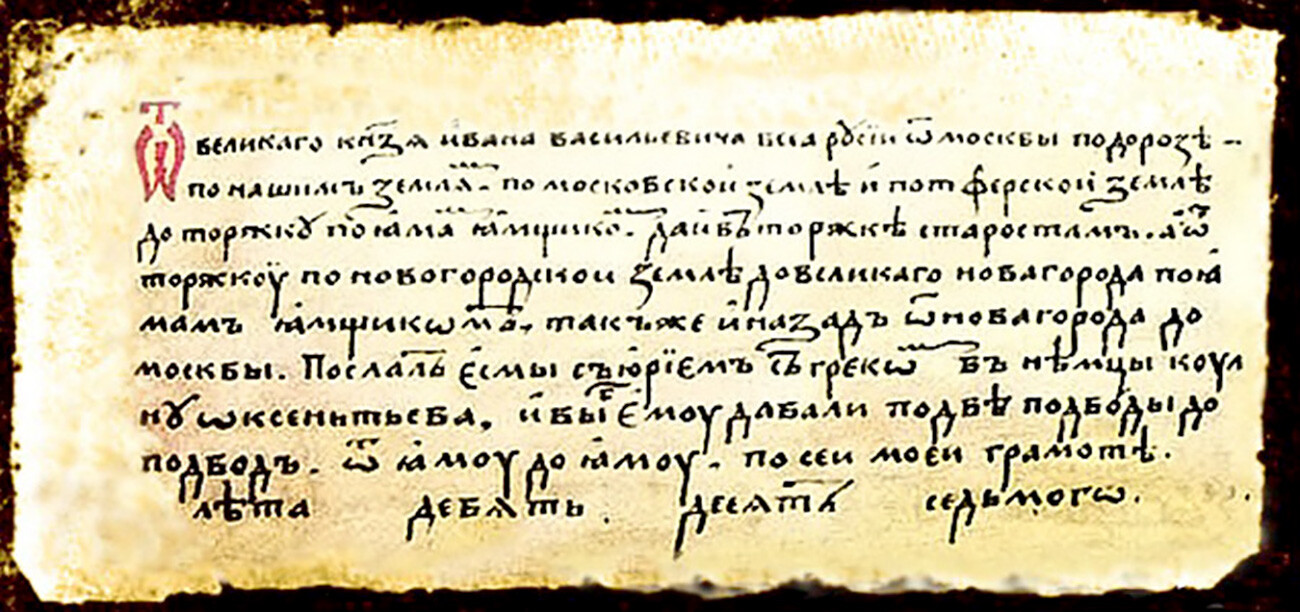 Ѿ великаго кн҃зѧ и҆вана васильевича всеа рꙋсїи ѿ москвы по дорозѣ –
по нашимъ землѧⷨ. по московскои землѣ и҆ по тферскои землѣ
до торжкꙋ по ꙗ҆маⷨ ꙗ҆мщикоⷨ. да и въ торжкѣ старостамъ. а҆ ѿ
торжкоу по новогородскои землѣ до великаго новагорода по ꙗ҆
мамъ ꙗ҆мщикѡмъ. такъже и҆ назадъ ѿ новагорода до
москвы. Послалъ є҆смы съ ю҆рїемъ съ грекѡⷨ въ нѣмцы коул
нꙋ ѡксентьева. и҆ вы є҆моу давали по двѣ подводы до
подводъ. ѿ ꙗ҆моу до ꙗ҆моу. по сеи моеи грамотѣ.
лѣта девѧть. десѧтъ седьмогѡ.